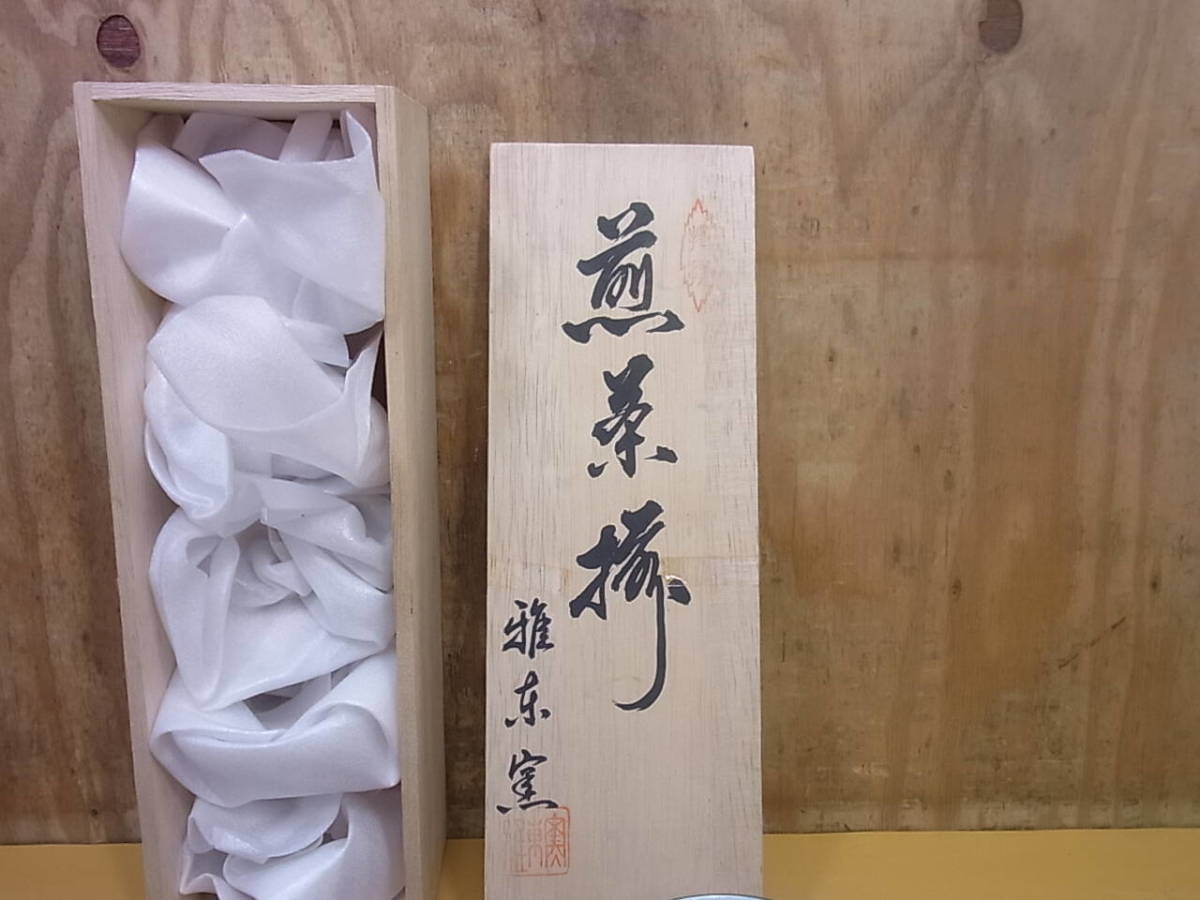 煎茶揃
雅東窯